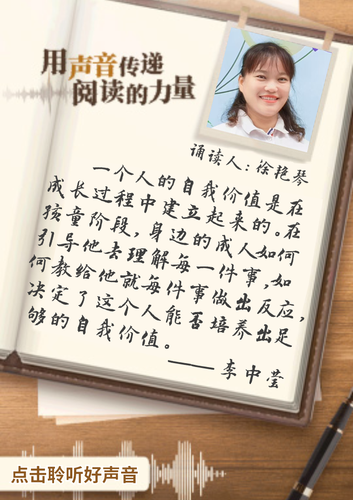 用声音传递
阅读的力量
诵读人：徐艳琴
一个人的自我价值是在
成长过程中建立起来的。在
孩童阶段，身边的成人如何
引导他去理解每一件事，如
何教给他就每件事做出反应，
决定了这个人能否培养出足
够的自我价值。
——李中莹
点击聆听好声音